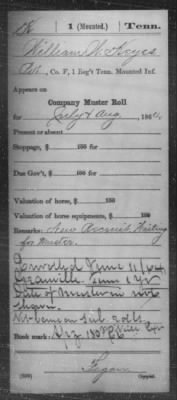 K 1 (Mounted.) Tenn.
William H. Keyes
Pvt., Co. F, 1 Reg't Tenn. Mounted Inf.
Appears on
Company Muster Roll
for July & Aug, 1864.
Present or absent
Stoppage, $ 100 for
Due Gov't, $ 100 for
Valuation of horse, $ 100
Valuation of horse equipments, $ 100
Remarks: New Recruit Waiting
for Muster.
Enrolled June 11/64,
Greenville Tenn 1 yr
Date of Muster in not
shown.
Not borne on sub. rolls.
Book mark:
(359)